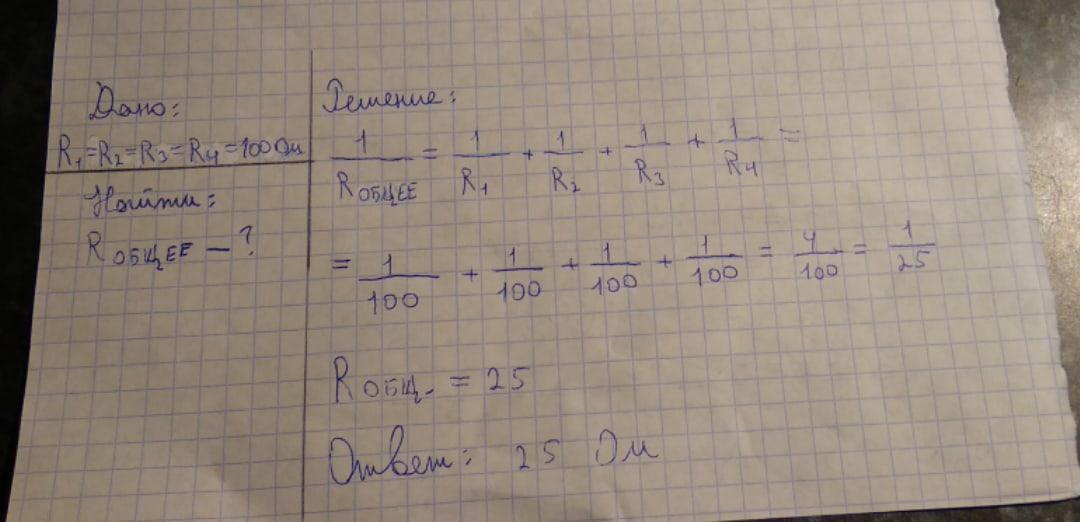 Дано:
R₁=R₂=R₃=R₄=100 Ом
Найти:
R ОБЩЕЕ – ?
Решение:
1/R ОБЩЕЕ = 1/R₁ + 1/R₂ + 1/R₃ + 1/R₄ =
= 1/100 + 1/100 + 1/100 + 1/100 = 4/100 = 1/25
R ОБЩ. = 25
Ответ: 25 Ом